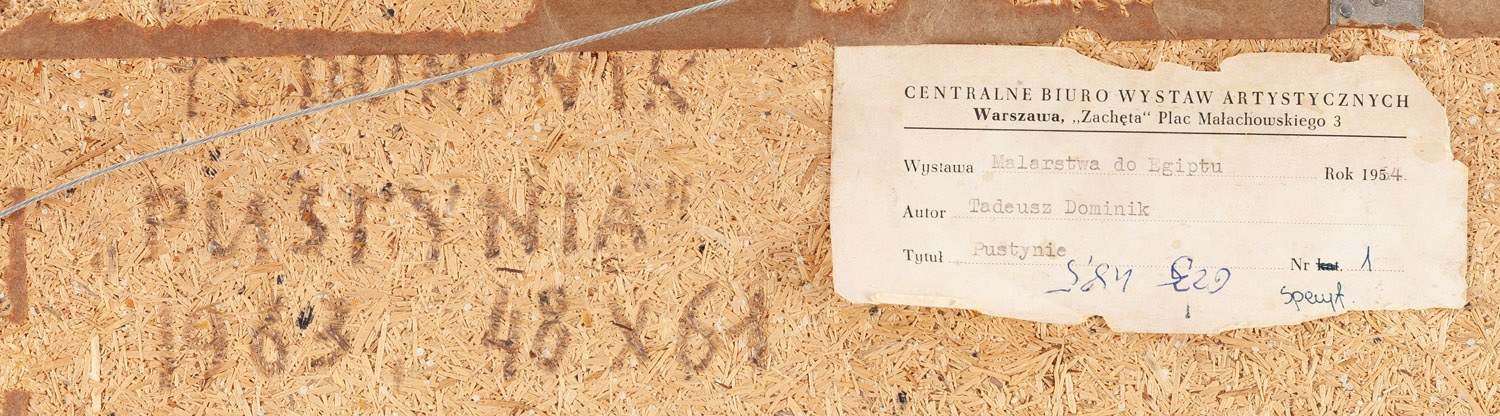 T. DOMINIK
"PUSTYNIA"
1963 48 x 61
CENTRALNE BIURO WYSTAW ARTYSTYCZNYCH
Warszawa, „Zachęta“ Plac Małachowskiego 3
Wystawa Malarstwa do Egiptu Rok 1964.
Autor Tadeusz Dominik
Tytuł Pustynie
Nr kat. 1